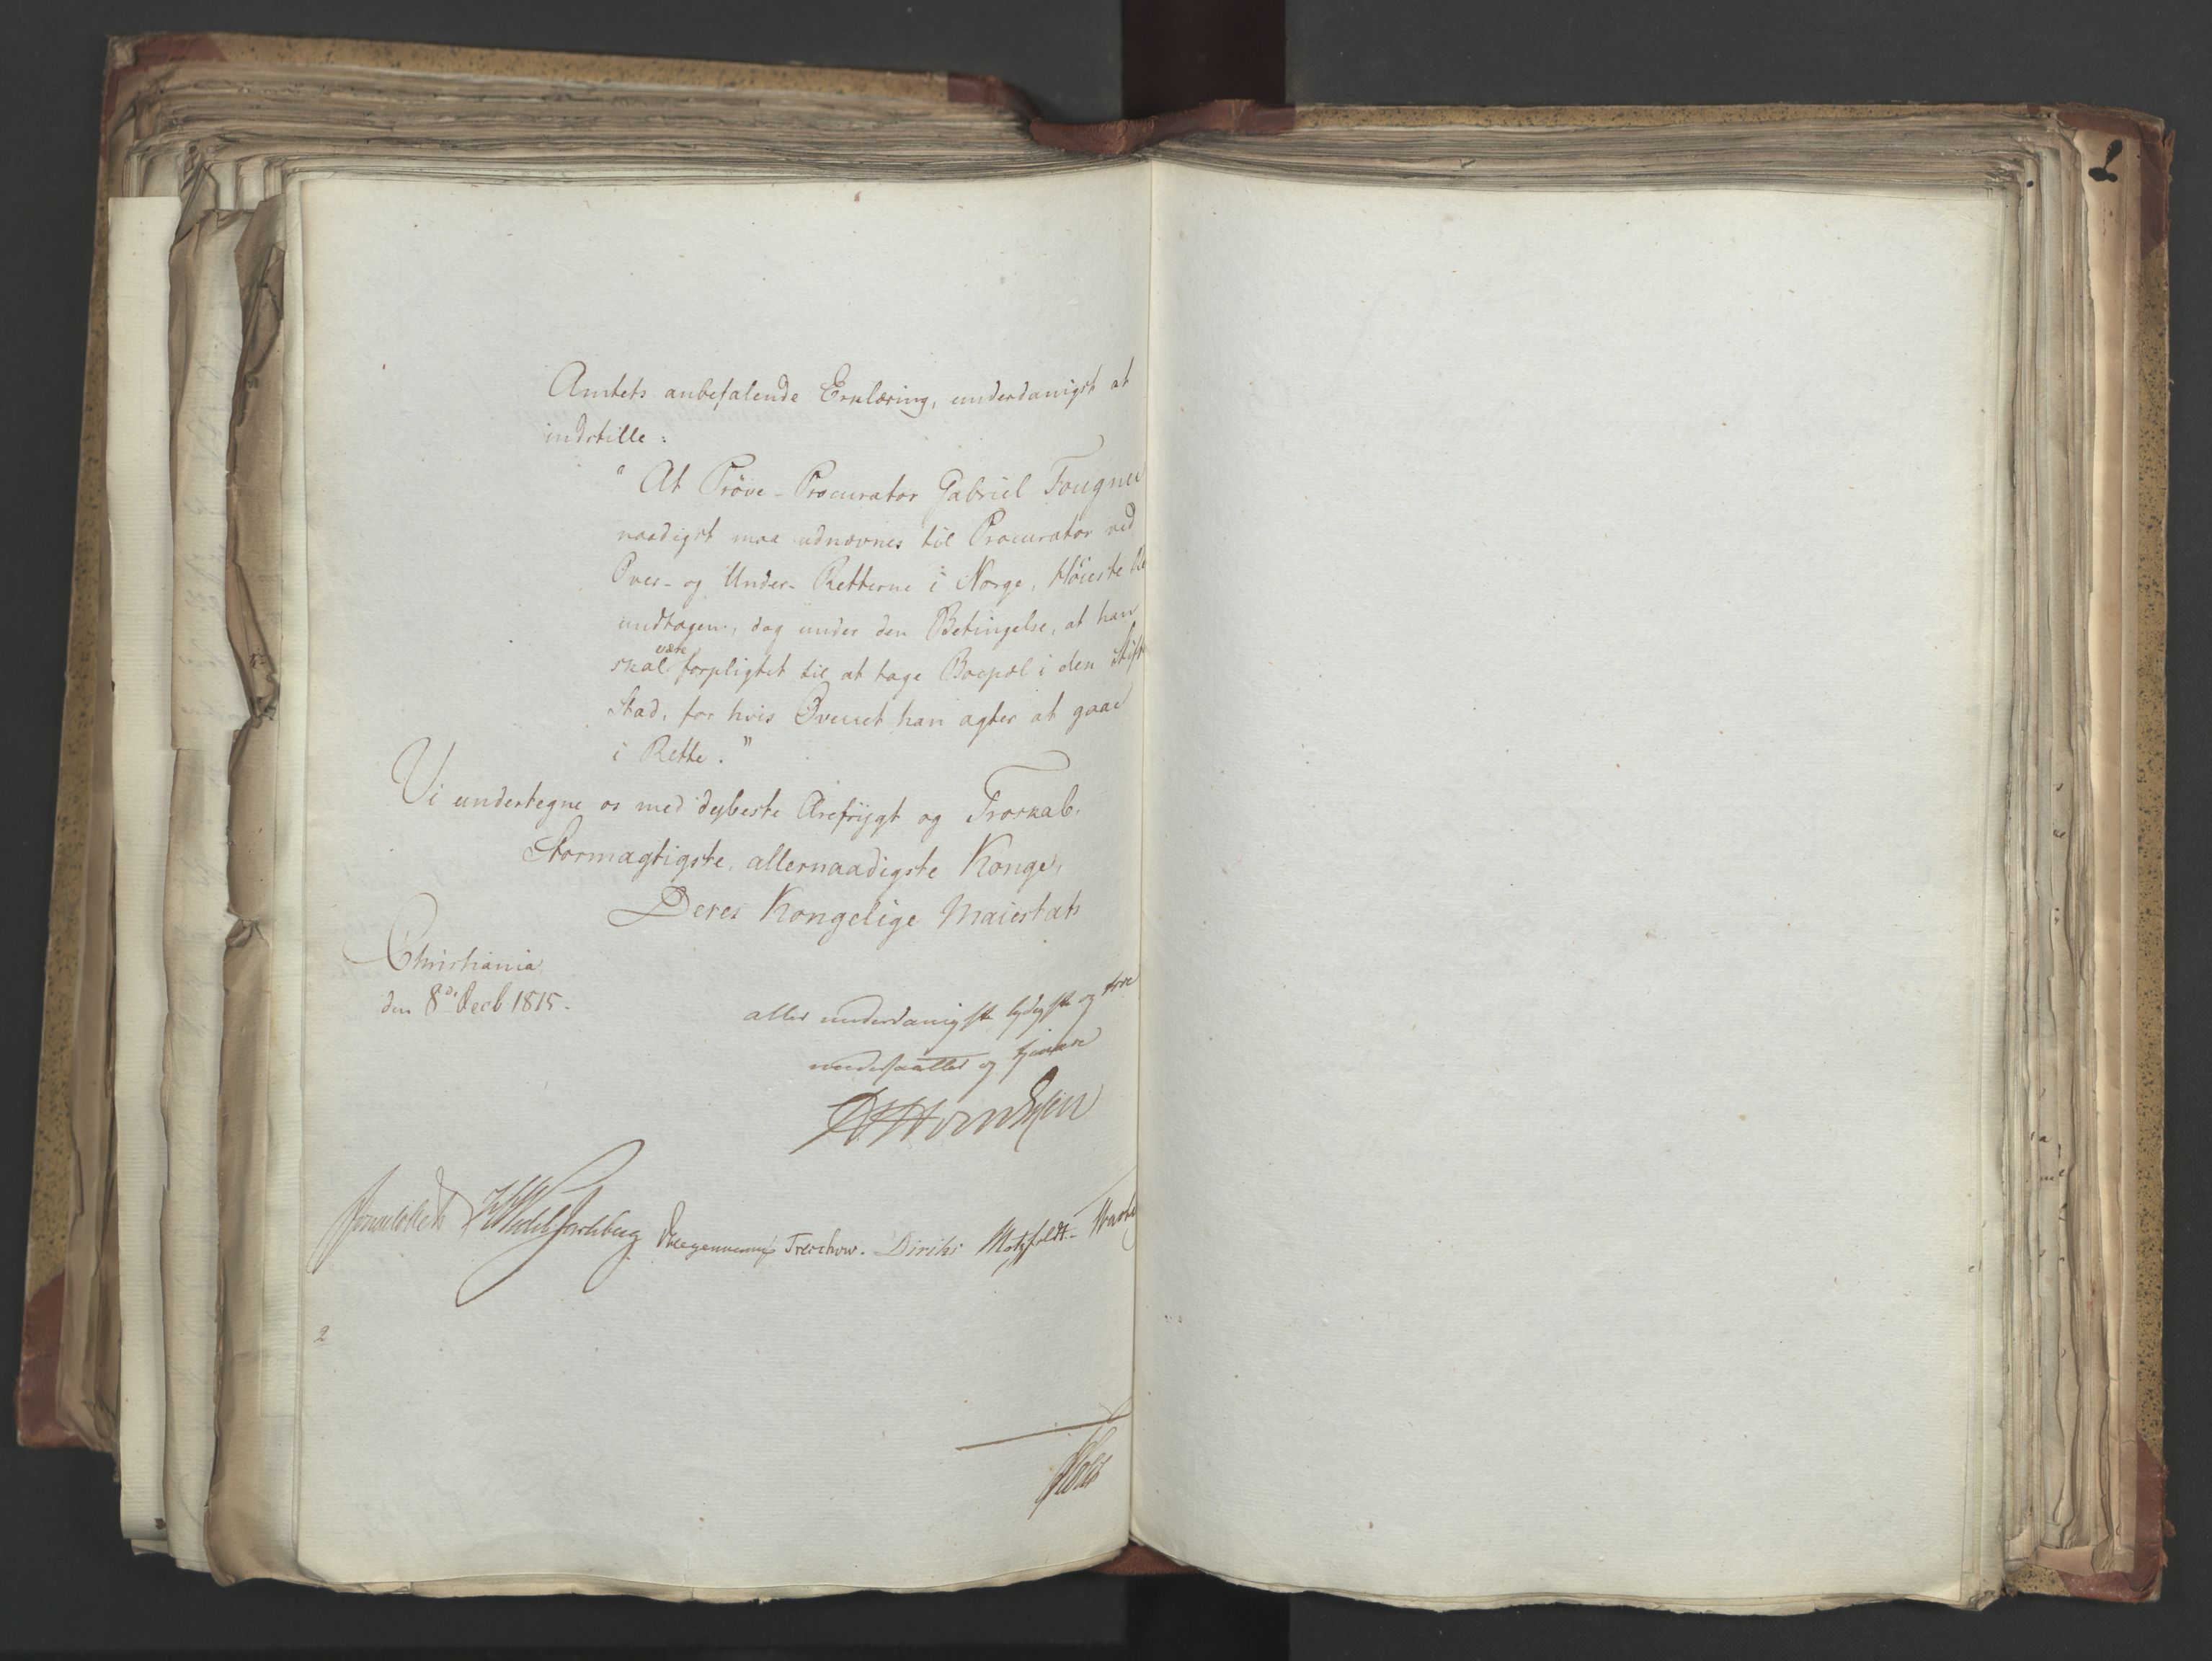 Amtets anbefalende Erklæring, underdanigst at
indstille:
"At Prøve-Procurator Gabriel Fougner
naadigst maa udnævnes til Procurator ved
Over- og Under-Retterne i Norge, Høieste Re
undtagen, dog under den Betingelse, at han
skal være forpligtet til at tage Boepæl i den Stift
Stad, for hvis Overret han agter at gaae
i Rette."
Vi undertegne os med dybeste Ærefrygt og Troskab.
Stormægtigste, allernaadigste Konge,
Deres Kongelige Maiestæts
Christiania
den 8de Decb 1815.
aller underdanigste lydigste og troe
undersaatter og tjenere
Sommerhielm Wedel Jarlsberg Treschow. Diriks Motzfeldt.
2
Holst